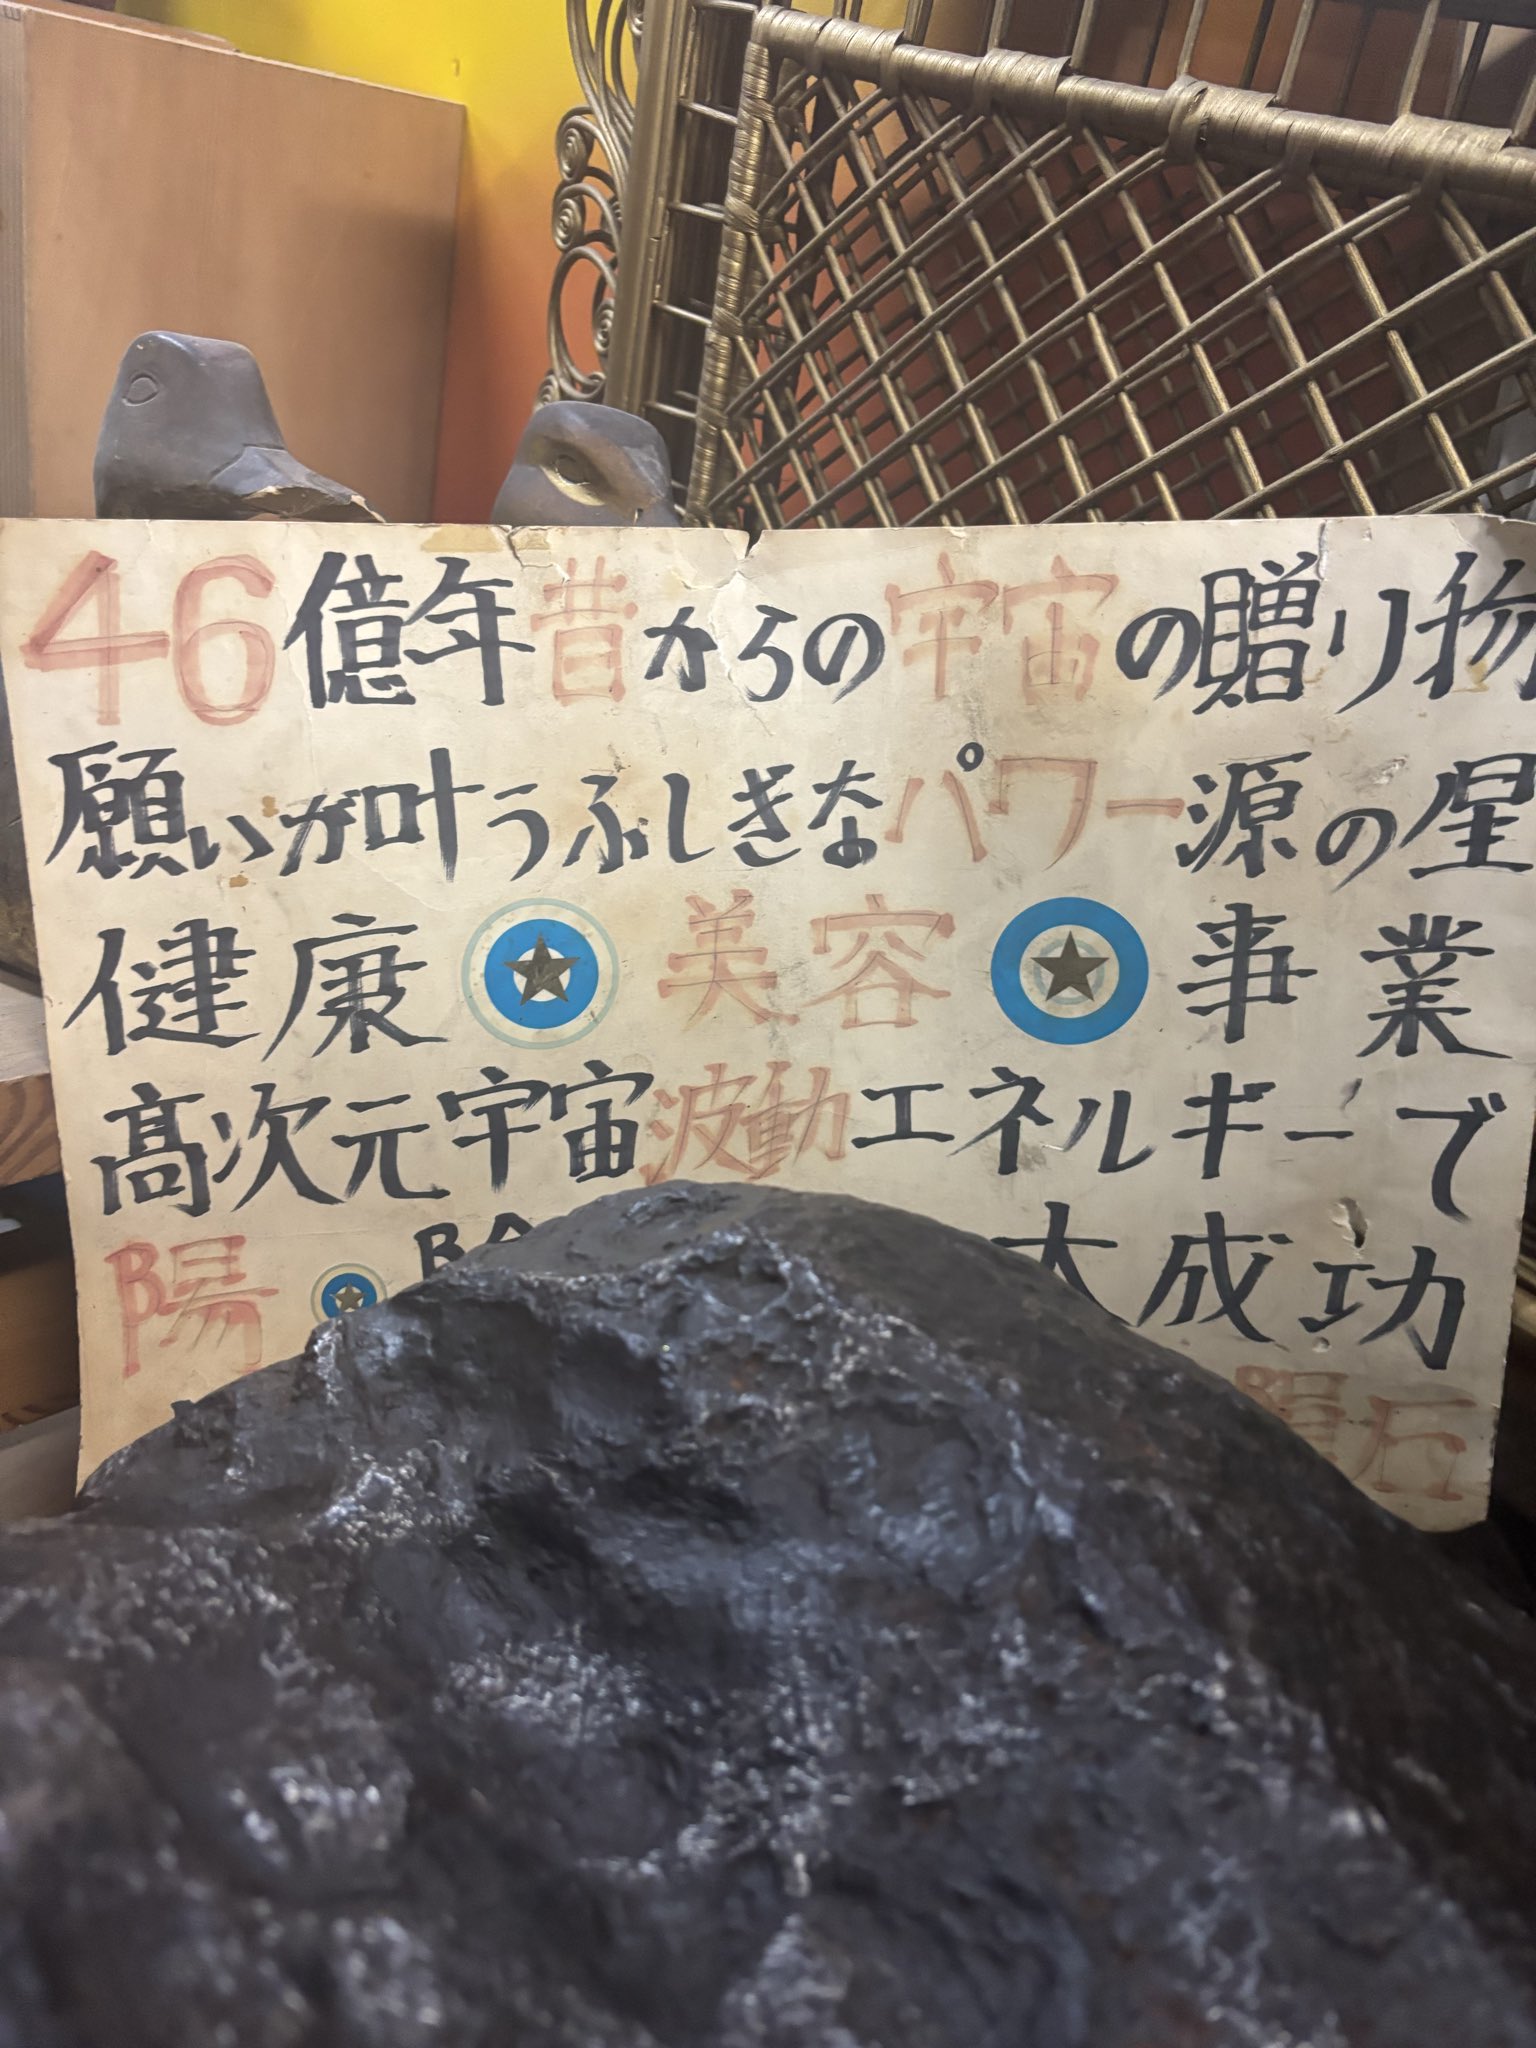 46億年昔からの宇宙の贈り物
願いが叶うふしぎなパワー源の星
健康 美容 事業
高次元宇宙波動エネルギーで
陽 大成功
陽石